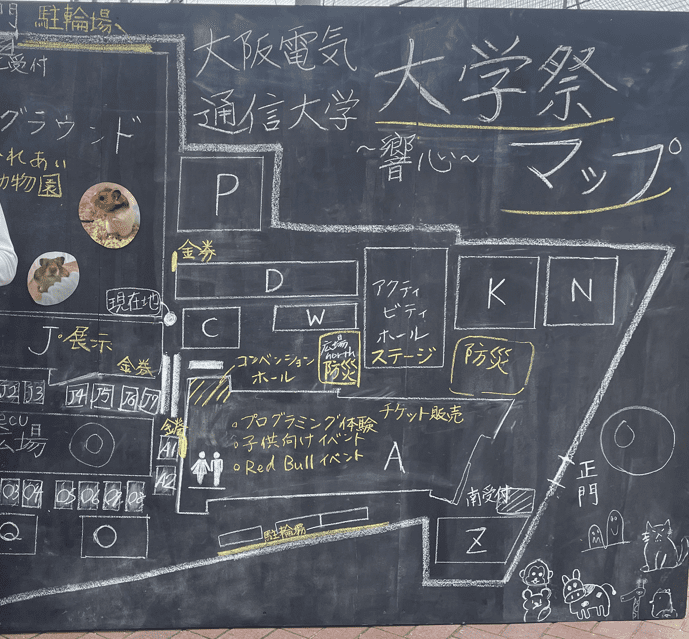 駐輪場
受付
大阪電気
通信大学
大学祭
~響心~
マップ
グラウンド
れあい
動物園
P
金券
D
現在地
C
W
アクティ
ビティ
ホール
ステージ
K
N
J°展示
金券
コンベンション
ホール
広場
north
防災
防災
J2 J3 J4 J5 J6 J7
ecu
広場
金券
A1
A2
プログラミング体験
子供向けイベント
Red Bullイベント
チケット販売
A
正門
南受付
Z
駐輪場